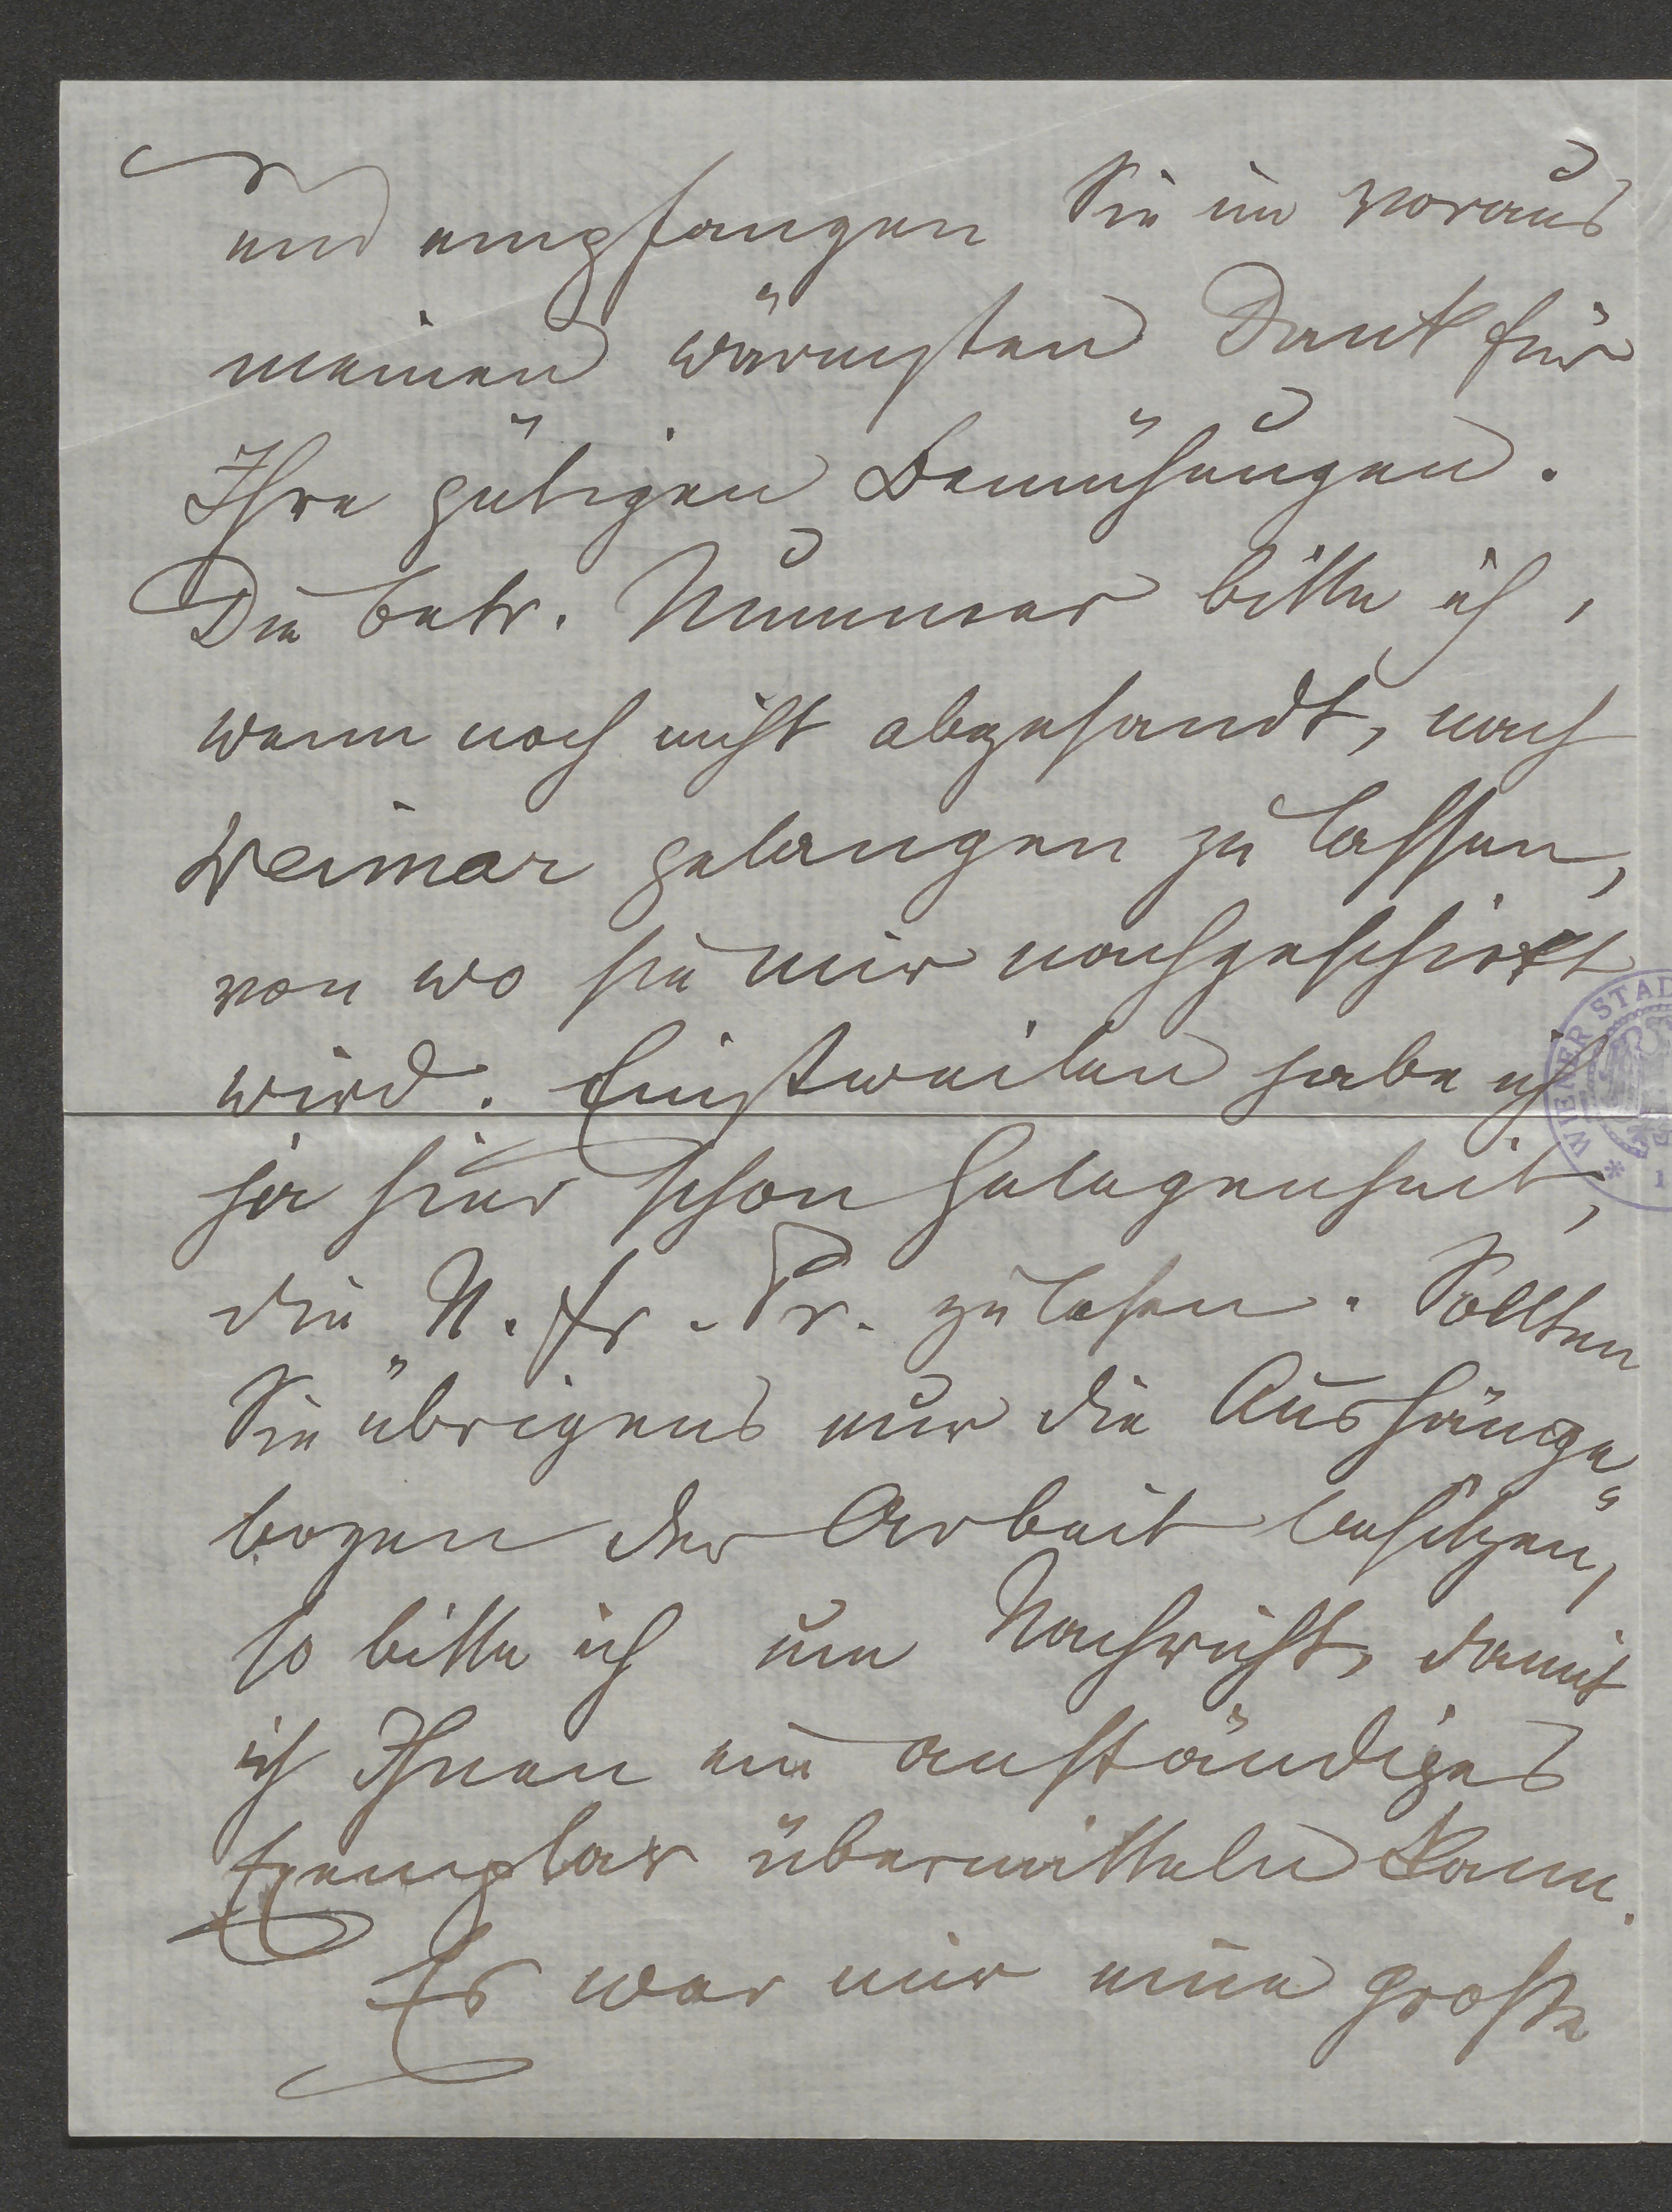 und empfangen Sie im voraus
meinen wärmsten Dank für
Ihre gütigen Bemühungen.
Die betr. Nummer bitte ich,
wenn noch nicht abgesandt, nach
Weimar gelangen zu lassen,
von wo sie mir nachgeschickt
wird. Einstweilen habe ich
ja hier schon Gelegenheit,
die N. Fr. Pr. zu lesen. Sollten
Sie übrigens nur die Aushänge"
bogen der Arbeit besitzen,
so bitte ich um Nachricht, damit
ich Ihnen ein anständiges
Exemplar übermitteln kann.
Es war mir eine große
WIENER STAD